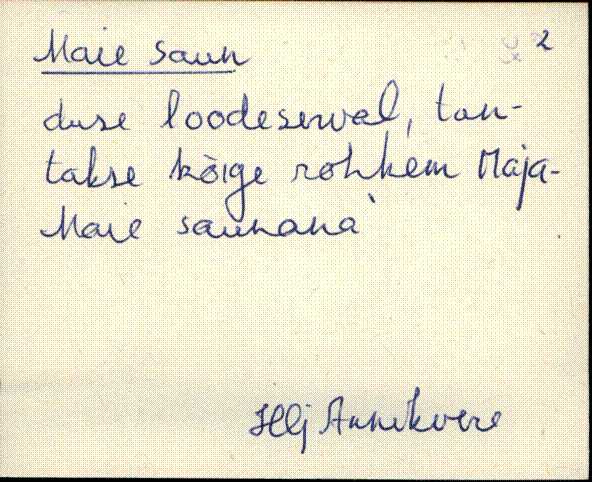 Maie saun 2
duse loodeserval, tun-
takse kõige rohkem Maja-
Maie saunana
Hlj Annikvere